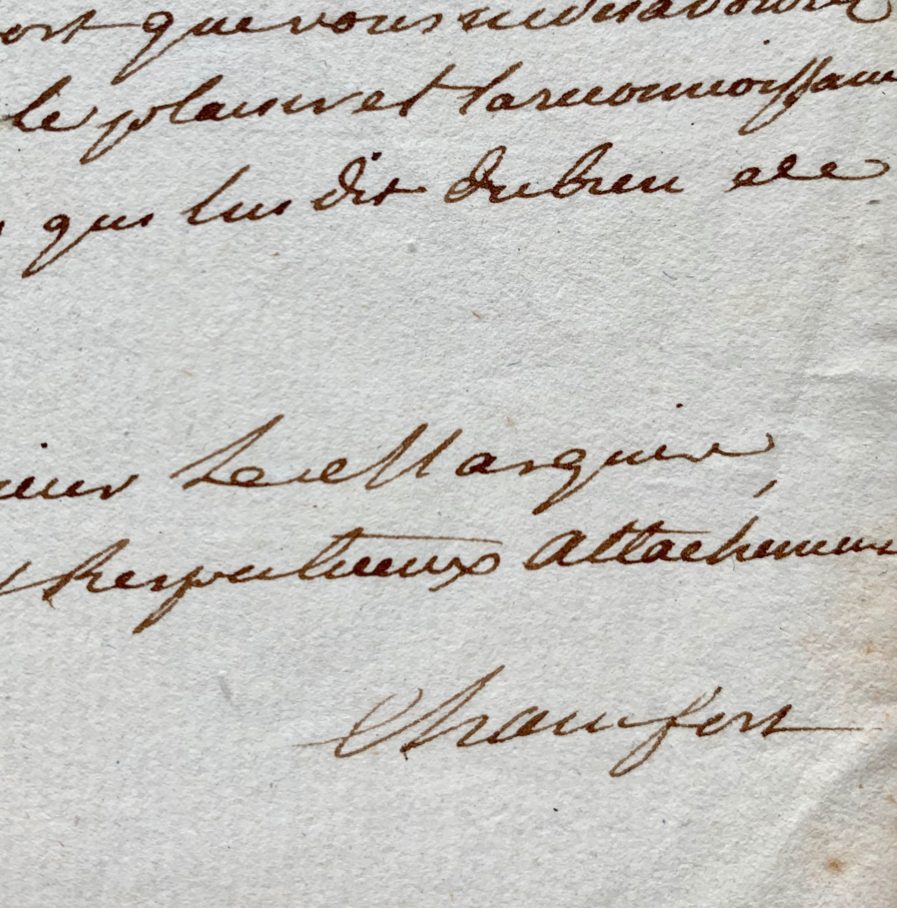 ort que vous
le plaisir et la reconnoissan
qui lui dit du bien de
ieur Le Marquis,
Respectueux attachement
Chamfort